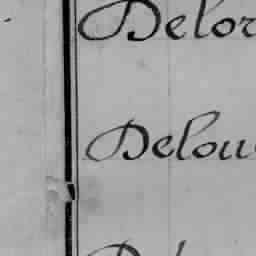 Delor
Delou